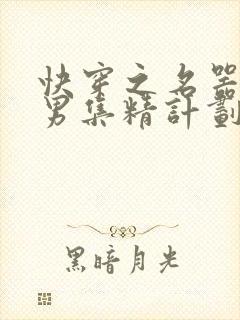 快穿之名器
男集精計劃
黑暗月光